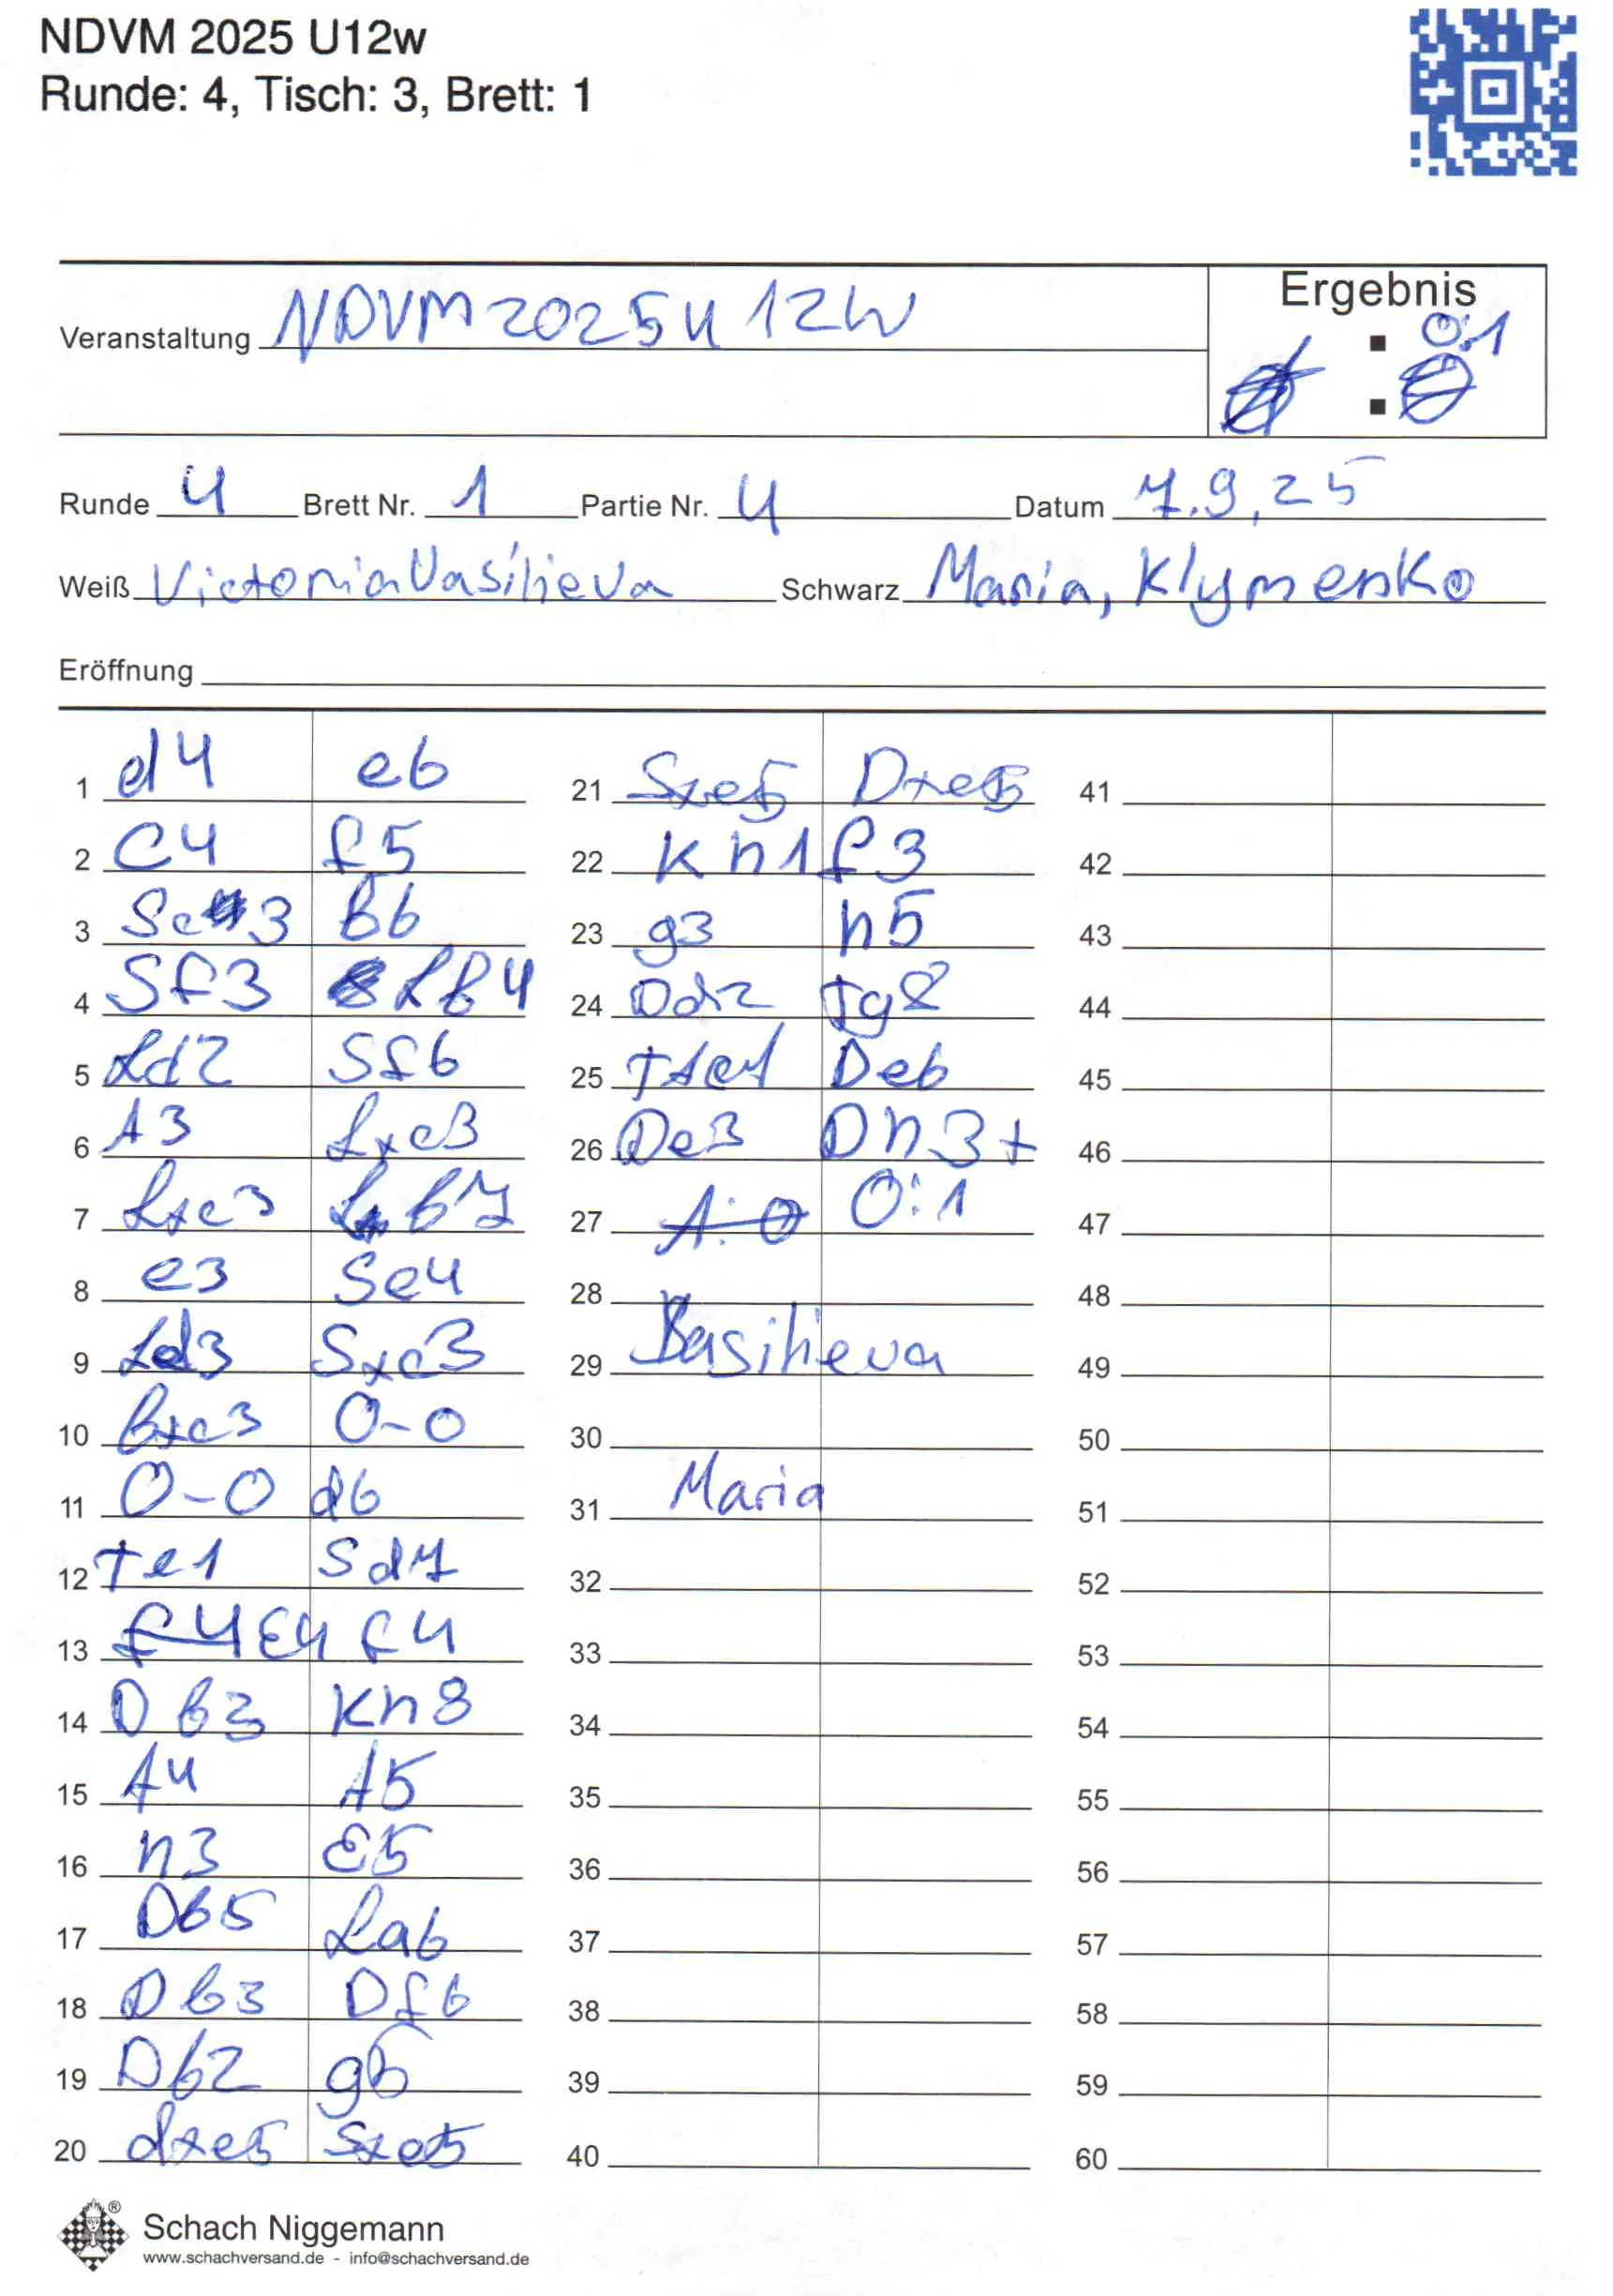 NDVM 2025 U12w
Runde: 4, Tisch: 3, Brett: 1
Ergebnis
Veranstaltung NDVM2025U12W : 0:1
:
Runde 4 Brett Nr. 1 Partie Nr. 4 Datum 7.9,25
Weiß Victoria Vasilieva Schwarz Maria, Klymenko
Eröffnung
1 d4 e6
2 C4 f5
3 Sc3 B6
4 Sf3 Lb4
5 Ld2 Sf6
6 A3 Lxc3
7 Lxc3 Lb7
8 e3 Se4
9 Ld3 Sxc3
10 bxc3 0-0
11 0-0 d6
12 Te1 Sd7
13 f4 E4 f4
14 Db3 Kh8
15 A4 A5
16 h3 E5
17 Db5 La6
18 Db3 Df6
19 Db2 g5
20 dxe5 Sxe5
21 Sxe5 Dxe5
22 Kh1 f3
23 g3 h5
24 Dd2 Tg8
25 De6
26 De3 Dh3+
27 1:0 0:1
28
29 Basilieva
30
31 Maria
32
33
34
35
36
37
38
39
40
41
42
43
44
45
46
47
48
49
50
51
52
53
54
55
56
57
58
59
60
Schach Niggemann
www.schachversand.de - info@schachversand.de